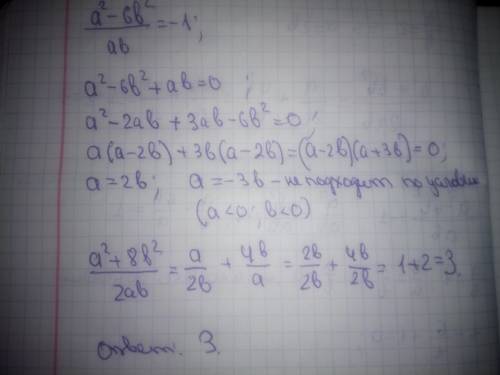 (a² - 6b²)/(ab) = -1;
a² - 6b² + ab = 0 ;
a² - 2ab + 3ab - 6b² = 0 ;
a(a-2b) + 3b(a-2b) = (a-2b)(a+3b) = 0;
a = 2b; a = -3b - не подходит по условию
(a<0; b<0)
(a² + 8b²)/(2ab) = a/(2b) + 4b/a = 2b/2b + 4b/2b = 1+2=3.
ответ: 3.